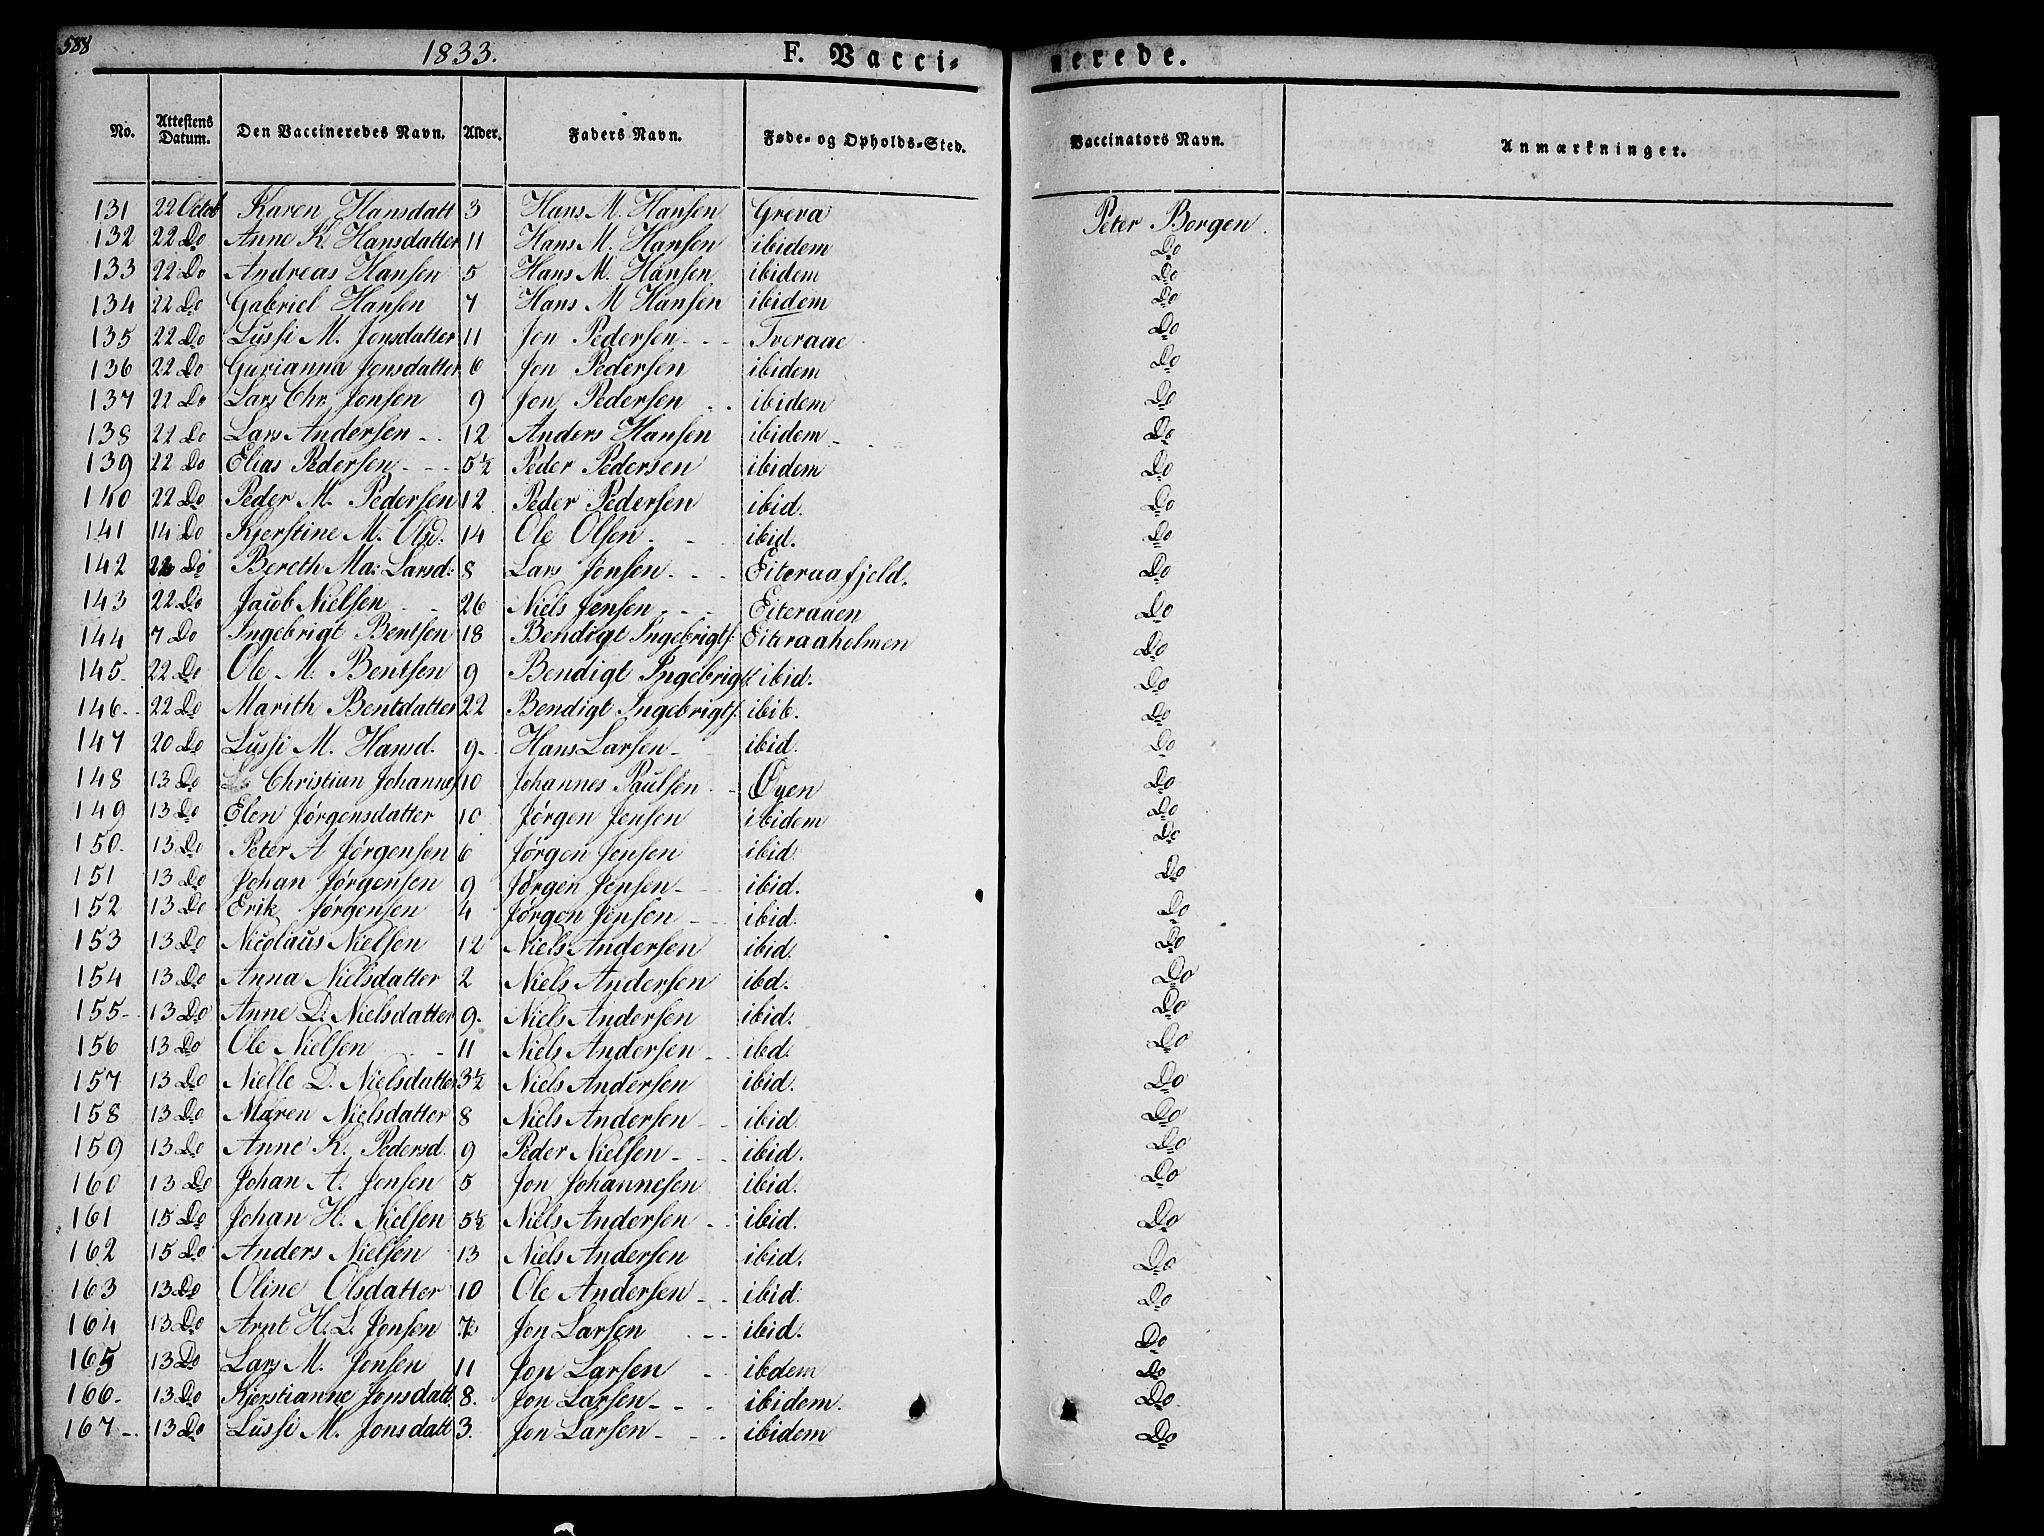 588
1833.
F. Vacci-
nerede.
No. Attestens Datum. Den Vaccineredes Navn. Alder. Faders Navn. Føde- og Opholds-Sted. Vaccinators Navn. Anmærkninger.
131 22 Octob Karen Hansdatt 3 Hans M. Hansen Greva Peter Borgen.
132 22 Do Anne K. Hansdatter 11 Hans M. Hansen ibidem Do
133 22 Do Andreas Hansen 5 Hans M. Hansen ibidem Do
134 22 Do Gabriel Hansen 7 Hans M Hansen ibidem Do
135 22 Do Lussi M. Jonsdatter 11 Jon Pedersen - - - Tveraae Do
136 22 Do Gurianna Jonsdatter 6 Jon Pedersen ibidem Do
137 22 Do Lars Chr. Jonsen 9 Jon Pedersen - - ibidem Do
138 22 Do Lars Andersen - - 12 Anders Hansen ibidem - Do
139 22 Do Elias Pedersen - - - 5½ Peder Pedersen ibidem Do
140 22 Do Peder M. Pedersen 12 Peder Pedersen ibid. Do
141 14 Do Kjerstine M. Olsd. 14 Ole Olsen - - ibid. Do
142 22 Do Bereth Ma: Larsd: 8 Lars Jonsen - - - Eiteraafjeld. Do
143 22 Do Jacob Nielsen - - 26 Niels Jensen - - - Eiteraaen Do
144 7 Do Ingebrigt Bentsen 18 Bendigt Ingebrigts. Eiteraaholmen Do
145- 22 Do Ole M. Bentsen 9 Bendigt Ingebrigts. ibid. Do
146- 22 Do Marith Bentsdatter 22 Bendigt Ingebrigts. ibib. Do
147 20 Do Lussi M. Hansd. 9- Hans Larsen - ibid. Do
148 13 Do Christian Johannes 10 Johannes Paulsen - - Øyen Do
149 13 Do Elen Jørgensdatter 10 Jørgen Jensen ibidem Do
150- 13 Do Peter A Jørgensen 6 Jørgen Jensen ibid. Do
151 13 Do Johan Jørgensen 9 Jørgen Jensen - ibid. Do
152 13 Do Erik Jørgensen 4 Jørgen Jensen - - ibid. Do
153 13 Do Nicolaus Nielsen 12 Niels Andersen ibid. Do
154 13 Do Anna Nielsdatter 2 Niels Andersen ibd. Do
155- 13 Do Anne D. Nielsdatter 9- Niels Andersen ibid. Do
156 13 Do Ole Nielsen - 11 Niels Andersen - - ibd. Do
157 13 Do Nielle D. Nielsdatter 3½ Niels Andersen ibid. Do
158 13 Do Maren Nielsdatter 8 Niels Andersen - - ibid. Do
159 13 Do Anne K. Pedersd. 9 Peder Nielsen - - - ibid. Do
160 13 Do Johan A. Jonsen 5 Jon Johannesen ibid. Do
161 15 Do Johan H. Nielsen 5½ Niels Andersen - - ibid. Do
162 15 Do Anders Nielsen 13 Niels Andersen ibid. Do
163 13 Do Oline Olsdatter 10 Ole Andersen - - ibid. Do
164 13 Do Arnt H. L. Jonsen Jon Larsen - - - ibid. Do
165 13 Do Lars M. Jonsen 11 Jon Larsen - ibdem Do
166- 13 Do Kjerstianne Jonsdatt. 8. Jon Larsen - - - ibidem. Do
167- 13 Do Lussi M. Jonsdatt 3. Jon Larsen - - - ibidem Do